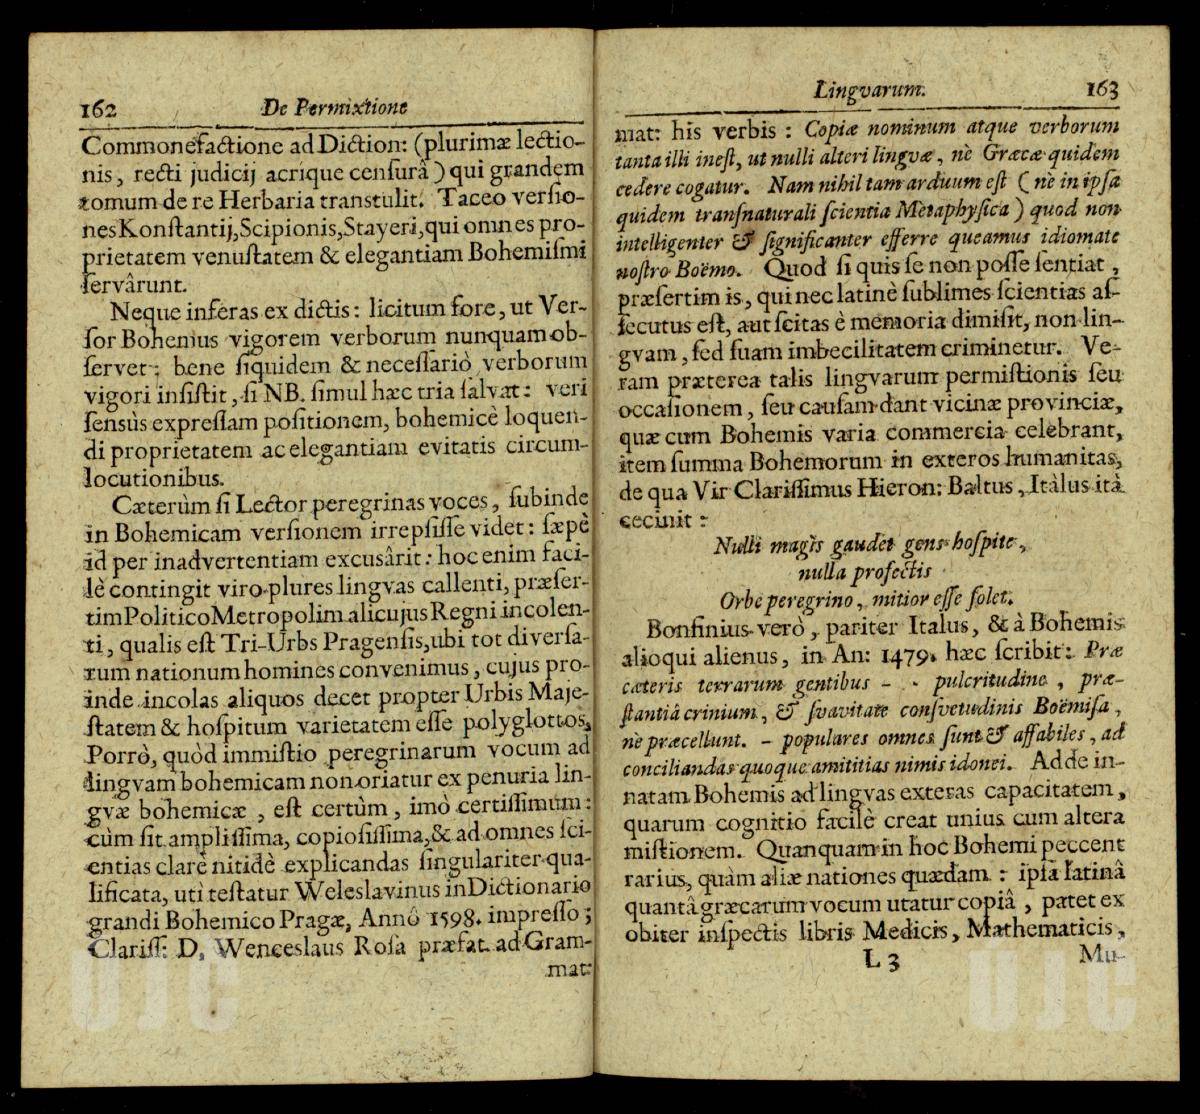 162 De Permixtione
Commonefactione ad Diction: (plurimæ lectio-
nis, recti judicij acrique censurâ) qui grandem
tomum de re Herbaria transtulit. Taceo versio-
nes Konstantij, Scipionis, Stayeri, qui omnes pro-
prietatem venustatem & elegantiam Bohemismi
servârunt.
Neque inferas ex dictis: licitum fore, ut Ver-
sor Bohemus vigorem verborum nunquam ob-
servet; bene siquidem & necessariò verborum
vigori insistit, si NB. simul hæc tria salvat: veri
sensùs expressam positionem, bohemicè loquen-
di proprietatem ac elegantiam evitatis circum-
locutionibus.
Cæterùm si Lector peregrinas voces, subinde
in Bohemicam versionem irrepsisse videt: sæpè
id per inadvertentiam excusârit: hoc enim faci-
lè contingit viro plures lingvas callenti, præser-
tim Politico Metropolim alicujus Regni incolen-
ti, qualis est Tri-Urbs Pragensis, ubi tot diversa-
rum nationum homines convenimus, cujus pro-
inde incolas aliquos decet propter Urbis Maje-
statem & hospitum varietatem esse polyglottos,
Porrò, quòd immistio peregrinarum vocum ad
lingvam bohemicam non oriatur ex penuria lin-
gvæ bohemicæ, est certùm, imò certissimum:
cùm sit amplissima, copiosissima, & ad omnes sci-
entias clarè nitidè explicandas singulariter qua-
lificata, utì testatur Weleslavinus in Dictionario
grandi Bohemico Pragæ, Annô 1598. impresso;
Clariss: D. Wenceslaus Rosa præfat. ad Gram-
mat:
Lingvarum. 163
mat: his verbis: Copiæ nominum atque verborum
tanta illi inest, ut nulli alteri lingvæ, nè Græcæ quidem
cedere cogatur. Nam nihil tam arduum est (nè in ipsa
quidem transnaturali scientia Metaphysica) quod non
intelligenter & significanter efferre queamus idiomate
nostro Boëmo. Quod si quis se non posse sentiat,
præsertim is, qui nec latinè sublimes scientias as-
secutus est, aut scitas è memoria dimisit, non lin-
gvam, sed suam imbecilitatem criminetur. Ve-
ram præterea talis lingvarum permistionis seu
occasionem, seu causam dant vicinæ provinciæ,
quæ cum Bohemis varia commercia celebrant,
item summa Bohemorum in exteros humanitas,
de qua Vir Clarissimus Hieron: Baltus, Itàlus ità
cecinit:
Nulli magìs gaudet gens hospite,
nulla profectis
Orbe peregrino, mitior esse solet.
Bonfinius verò, pariter Italus, & à Bohemis
alioqui alienus, in An: 1479. hæc scribit: Præ
cæteris terrarum gentibus - - pulcritudine, præ-
stantiâ crinium, & svavitate consvetudinis Boëmisa,
nè præcellunt. - populares omnes sunt & affabiles, ad
conciliandas quoque amititias nimis idonei. Adde in-
natam Bohemis ad lingvas exteras capacitatem,
quarum cognitio facilè creat unius cum altera
mistionem. Quanquam in hoc Bohemi peccent
rarius, quàm aliæ nationes quædam: ipsa latinâ
quantâ græcarum vocum utatur copiâ, patet ex
obiter inspectis libris Medicis, Mathematicis,
L 3 Mu-
UJC UJC